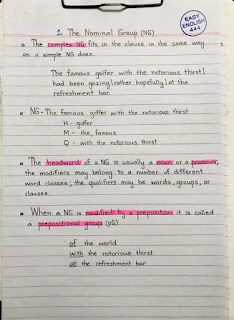 1. The Nominal Group (NG)
EASY ENGLISH 444
The complex NG fits in the clause in the same way
as a simple NG does.
The famous golfer with the notorious thirst |
had been gazing | rather hopefully | at the
refreshment bar.
NG - The famous golfer with the notorious thirst
H - golfer
M - the, famous
Q - with the notorious thirst
The headword of a NG is usually a noun or a pronoun,
the modifiers may belong to a number of different
word classes; the qualifiers may be words, groups, or
clauses
When a NG is modified by a preposition it is called
a prepositional group (pG)
of the world
with the notorious thirst
at the refreshment bar